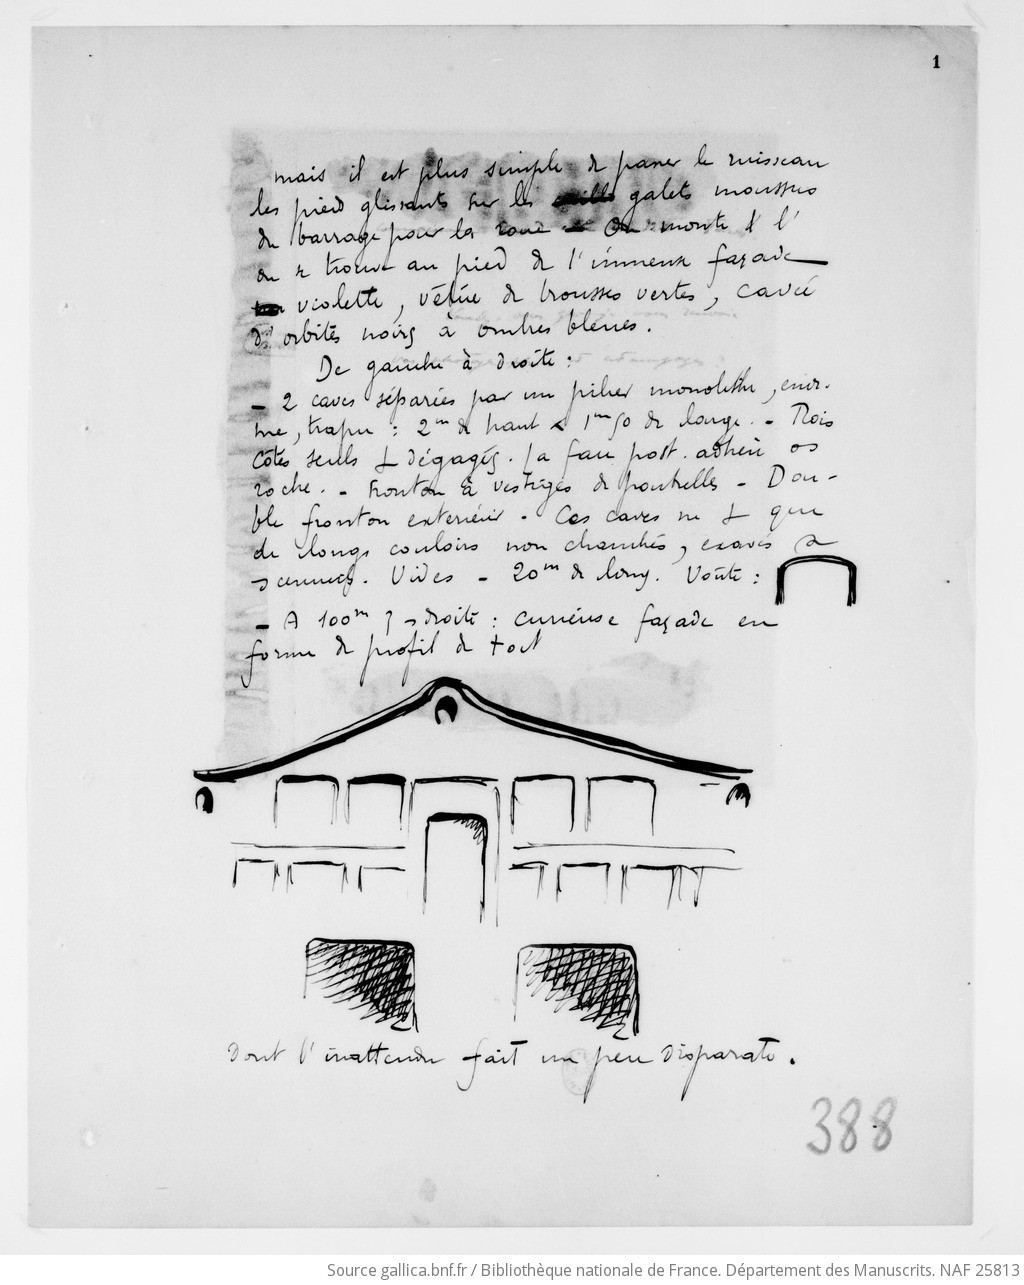 1
mais il est plus simple de passer le ruisseau
les pieds glissants sur les galets moussus
du barrage pour la roue On monte & l'
on se trouve au pied de l'immense façade
violette, vêtue de brousses vertes, cavée
d'orbites noirs à ombres bleues.
De gauche à droite :
- 2 caves séparées par un pilier monolithe, énor-
me, trapu : 2m de haut 1m50 de large. - Trois
côtés seuls dégagés. la face post. adhère
roche. - Fronton à vestiges de poutrelles - Dou-
ble fronton extérieur. Ces caves ne que
de longs couloirs non chambrés, exavés
Vides - 20m de long. Voûte :
- A 100m droite : curieuse façade en
forme de profil de toit
dont l'inattendu fait un peu disparate.
388
Source gallica.bnf.fr / Bibliothèque nationale de France. Département des Manuscrits. NAF 25813